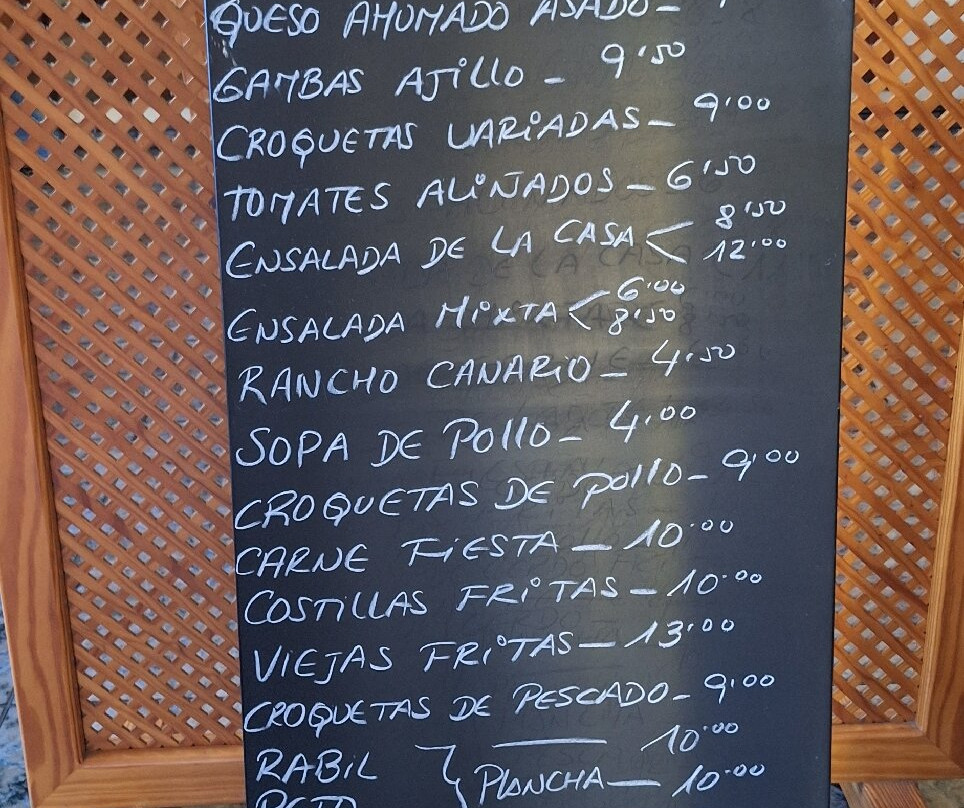 QUESO AHUMADO ASADO -
GAMBAS AJILLO - 9'50
CROQUETAS VARIADAS - 9'00
TOMATES ALIÑADOS - 6'50
ENSALADA DE LA CASA < 8'50
12'00
ENSALADA MIXTA < 6'00
8'50
RANCHO CANARIO - 4'50
SOPA DE POLLO - 4'00
CROQUETAS DE POLLO - 9'00
CARNE FIESTA - 10'00
COSTILLAS FRITAS - 10'00
VIEJAS FRITAS - 13'00
CROQUETAS DE PESCADO - 9'00
RABIL } — 10'00
PLANCHA - 10'00